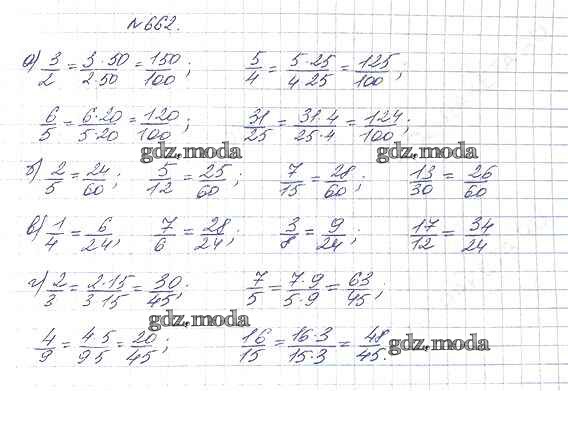 №662.
а) 3/2 = 3·50/2·50 = 150/100; 5/4 = 5·25/4·25 = 125/100;
6/5 = 6·20/5·20 = 120/100; 31/25 = 31·4/25·4 = 124/100;
gdz.moda gdz.moda
б) 2/5 = 24/60; 5/12 = 25/60; 7/15 = 28/60; 13/30 = 26/60
в) 1/4 = 6/24; 7/6 = 28/24; 3/8 = 9/24; 17/12 = 34/24
г) 2/3 = 2·15/3·15 = 30/45; 7/5 = 7·9/5·9 = 63/45;
gdz.moda
4/9 = 4·5/9·5 = 20/45; 16/15 = 16·3/15·3 = 48/45.
gdz.moda